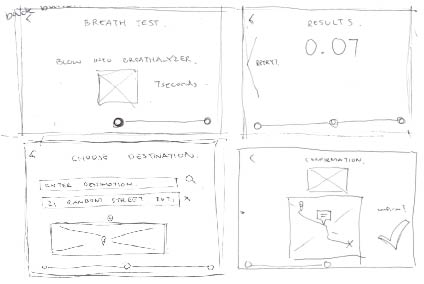 back
BREATH TEST.
BLOW INTO BREATHALYZER.
7seconds
RESULTS.
0.07
RETRY?
CHOOSE DESTINATION.
ENTER DESTINATION.
121 RANDOM STREET
X
CONFIRMATION.
confirm!